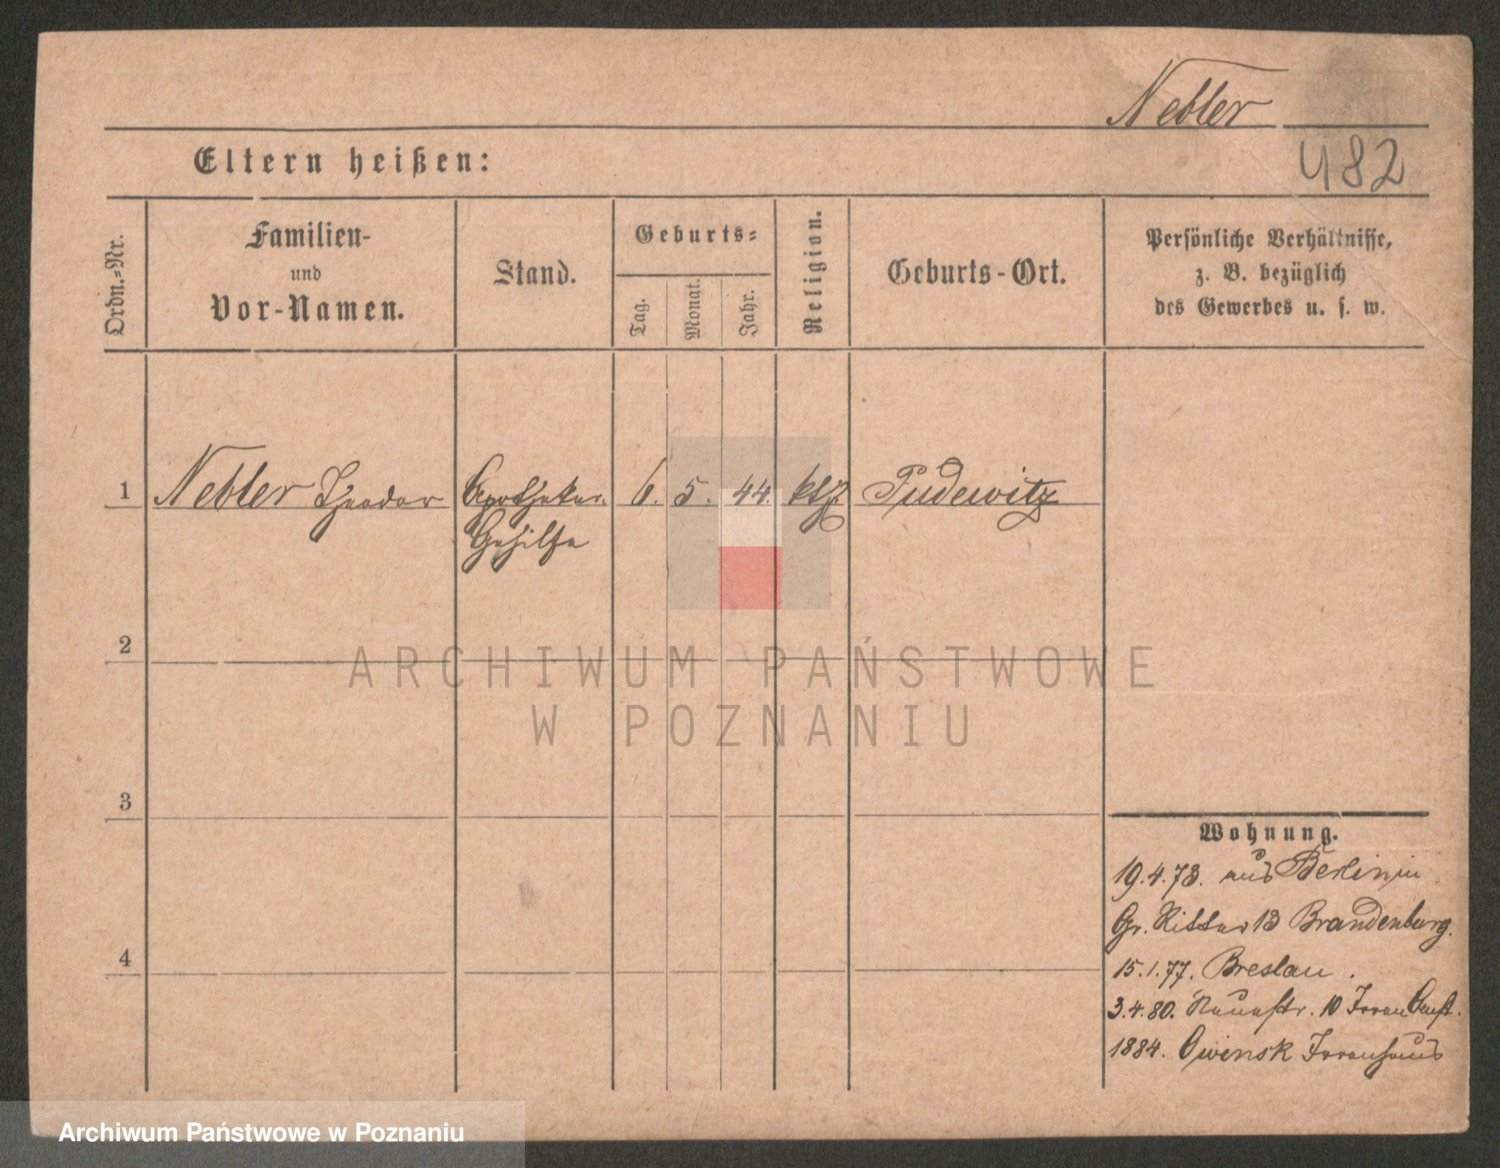 Nebler
482
Eltern heißen:
Ordn.-Nr.
Familien-
und
Vor-Namen.
Stand.
Geburts-
Tag.
Monat.
Jahr.
Religion.
Geburts-Ort.
Persönliche Verhältnisse,
z. B. bezüglich
des Gewerbes u. s. w.
1 Nebler Theodor Apotheker- 6. 5. 44. kth Pudewitz
Gehilfe
2
ARCHIWUM PAŃSTWOWE
W POZNANIU
3
Wohnung.
19.4.73. aus Berlin in
Gr. Ritter 13 Brandenburg.
4
15.1.77. Breslau.
3.4.80. Neuestr. 10 Irren
1884. Owinsk Irrenhaus
Archiwum Państwowe w Poznaniu